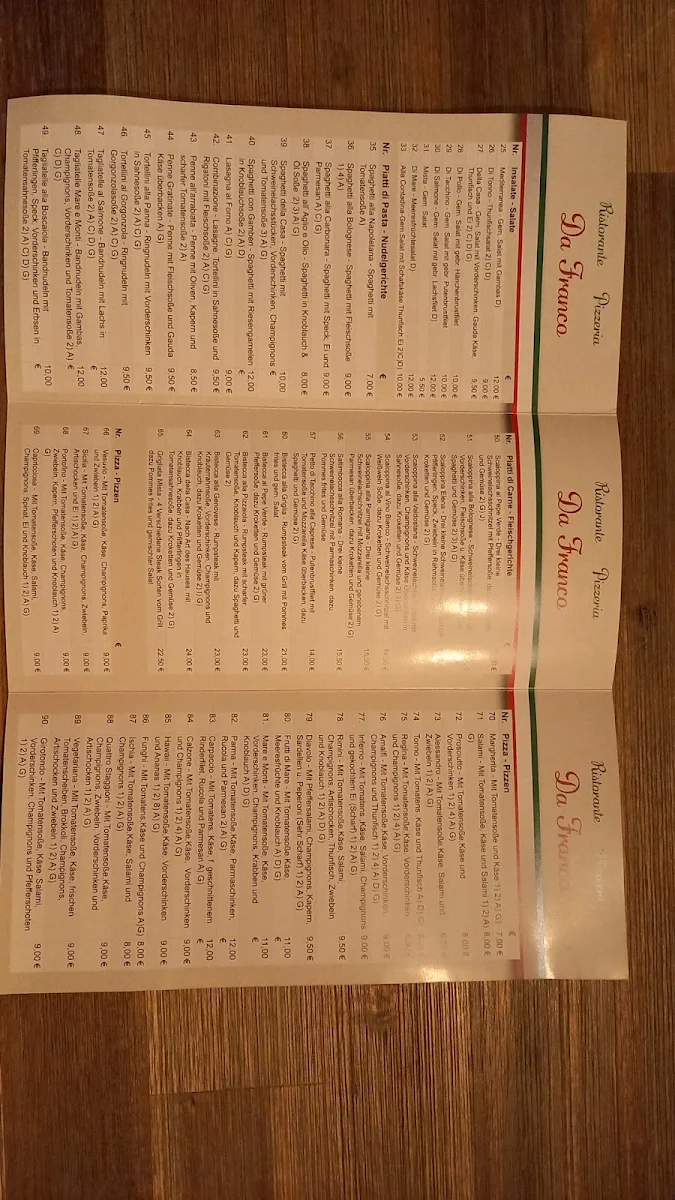 Ristorante Pizzeria
Da Franco
Nr. Insalate - Salate €
25 Mediterranea - Gem. Salat mit Gambas D) 12,00 €
26 Di Tonno - Thunfischsalat 2) C) D) 9,00 €
27 Della Casa - Gem. Salat mit Vorderschinken, Gauda Käse,
Thunfisch und Ei 2) C) D) G) 9,50 €
28 Di Pollo - Gem. Salat mit gebr. Hähnchenbrustfilet 10,00 €
29 Di Tacchino - Gem. Salat mit gebr. Putenbrustfilet 10,00 €
30 Di Salmone - Gem. Salat mit gebr. Lachsfilet D) 12,00 €
31 Mista - Gem. Salat 5,50 €
32 Di Mare - Meeresfruchtesalat D) 12,00 €
33 Alla Contadina-Gem.Salat mit Schafskäse,Thunfisch Ei 2)C)D) 10,00 €
Nr. Piatti di Pasta - Nudelgerichte €
35 Spaghetti alla Napoletana - Spaghetti mit
Tomatensoße A) 7,00 €
36 Spaghetti alla Bolognese - Spaghetti mit Fleischsoße
1) 4) A) 9,00 €
37 Spaghetti alla Carbonara - Spaghetti mit Speck, Ei und
Parmesan A) C) G) 9,00 €
38 Spaghetti all'Aglio e Olio - Spaghetti in Knoblauch &
Öl Soße 2) 3) A) G) 8,00 €
39 Spaghetti della Casa - Spaghetti mit
Schweinelachsstücken, Vorderschinken, Champignons
und Tomatensoße 3) A) G) 10,00 €
40 Spaghetti con Gamberi - Spaghetti mit Riesengarnelen
in Knoblauchsoße 2) A) G) 12,00 €
41 Lasagna al Forno A) C) G) 9,00 €
42 Combinazione - Lasagne, Tortellini in Sahnesoße und
Rigatoni mit Fleischsoße 2) A) C) G) 9,50 €
43 Penne all'arrabiata - Penne mit Oliven, Kapern und
scharfer Tomatensoße 2) A) 8,50 €
44 Penne Gratinate - Penne mit Fleischsoße und Gauda
Käse überbacken A) G) 9,50 €
45 Tortellini alla Panna - Ringnudeln mit Vorderschinken
in Sahnesoße 2) A) C) G) 9,50 €
46 Tortellini al Gorgonzola - Ringnudeln mit
Gorgonzolasoße 2) A) C) G) 9,50 €
47 Tagliatelle al Salmone - Bandnudeln mit Lachs in
Tomatensoße 2) A) C) D) G) 12,00 €
48 Tagliatelle Mare e Monti - Bandnudeln mit Gambas,
Champignons, Vorderschinken und Tomatensoße 2) A)
C) D) G) 12,00 €
49 Tagliatelle alla Boscaiola - Bandnudeln mit
Pfifferlingen, Speck, Vorderschinken und Erbsen in
Tomatensahnesoße 2) A) C) D) G) 10,00 €
Ristorante Pizzeria
Da Franco
Nr. Piatti di Carne - Fleischgerichte
50 Scaloppina al Pepe Verde - Drei kleine
Schweinelachsschnitzel mit Pfeffersoße, dazu
und Gemüse 2) G) J)
51 Scaloppina alla Bolognese - Schweinelachs
Vorderschinken, Fleischsoße, u.Käse
Spaghetti und Gemüse 2) 3) A) G)
52 Scaloppina Elena - Drei kleine Schweine
Pfifferlingen, Speck, Zwiebeln in Rahmsoße
Kroketten und Gemüse 2) G)
53 Scaloppina alla Valdostana - Schweinelachs
Vorderschinken, Champignons und Käse
Sahnesoße, dazu Kroketten und Gemüse 2)
54 Scaloppina al Vino Bianco - Schweinelachsschnitzel mit
Weißwein Soße, dazu Kroketten und Gemüse 2) G)
55 Scaloppina alla Parmigiana - Drei kleine
Schweinelachsschnitzel mit Mozzarella und geriebenem
Parmesan überbacken, dazu Kroketten und Gemüse 2) G)
56 Saltimbocca alla Romana - Drei kleine
Schweinelachsschnitzel mit Parmaschinken, dazu
Pommes frites und Gemüse 15,50 €
57 Petto di Tacchino alla Caprese - Putenbrustfilet mit
Tomatensoße und Mozzarella Käse überbacken, dazu
Spaghetti und Gemüse 2) A) G) 14,00 €
60 Bistecca alla Griglia - Rumpsteak vom Grill mit Pommes
frites und gem. Salat 21,00 €
61 Bistecca al Pepe Verde - Rumpsteak mit grüner
Pfeffersoße, dazu Kroketten und Gemüse 2) G) 23,00 €
62 Bistecca alla Pizzaiola - Rumpsteak mit scharfer
Tomatensoße, Knoblauch und Kapern, dazu Spaghetti und
Gemüse 23,00 €
63 Bistecca alla Genovese - Rumpsteak mit
Kräuterrahmsoße, Vorderschinken, Champignons und
Knoblauch, dazu Kroketten und Gemüse 2) G) 23,00 €
64 Bistecca della Casa - Nach Art des Hauses mit
Knoblauch, Krabben und Pfifferlingen in
Tomatensahnesoße, dazu Kroketten und Gemüse 2) G) 24,00 €
65 Grigliata Mista - 4 Verschiedene Steak Sorten vom Grill,
dazu Pommes frites und gemischter Salat 22,50 €
Nr. Pizza - Pizzen €
66 Vesuvio - Mit Tomatensoße, Käse, Champignons, Paprika
und Zwiebeln 1) 2) A) G) 9,00 €
67 Sicilia - Mit Tomatensoße, Käse, Champignons, Zwiebeln,
Artischocken und Ei 1) 2) A) G) 9,00 €
68 Portofino - Mit Tomatensoße, Käse, Champignons,
Zwiebeln, Kapern, Pfefferschoten und Knoblauch 1) 2) A) 9,00 €
69 Capricciosa - Mit Tomatensoße, Käse, Salami,
Champignons, Spinat, Ei und Knoblauch 1) 2) A) G) 9,00 €
Ristorante
Da Franco
Nr. Pizza - Pizzen €
70 Margherita - Mit Tomatensoße und Käse 1) 2) A) G) 7,00 €
71 Salami - Mit Tomatensoße, Käse und Salami 1) 2) A) 8,00 €
72 Prosciutto - Mit Tomatensoße, Käse und
Vorderschinken 1) 2) 4) A) G) 8,00 €
73 Alessandro - Mit Tomatensoße, Käse, Salami und
Zwiebeln 1) 2) A) G)
74 Tonno - Mit Tomatens., Käse und Thunfisch A)
75 Regina - Mit Tomatensoße, Käse, Vorderschinken
und Champignons 1) 2) 4) A) G)
76 Amalfi - Mit Tomatensoße, Käse, Vorderschinken,
Champignons und Thunfisch 1) 2) 4) A) D) G) 9,00 €
77 Inferno - Mit Tomatens, Käse, Salami, Champignons
und gekochten Ei (Scharf) 1) 2) A) G) 9,00 €
78 Rimini - Mit Tomatensoße, Käse, Salami,
Champignons, Artischocken, Thunfisch, Zwiebeln
und Knoblauch 1) 2) A) D) G) 9,50 €
79 Diavolo - Mit Pfefferschoten, Champignons, Kapern,
Sardellen u. Peperoni (Sehr Scharf) 1) 2) A) G) 9,50 €
80 Frutti di Mare - Mit Tomatensoße, Käse,
Meeresfrüchte und Knoblauch A) D) G) 11,00 €
81 Mare e Monti - Mit Tomatensoße, Käse,
Vorderschinken, Champignons, Krabben und
Knoblauch A) D) G) 11,00 €
82 Parma - Mit Tomatensoße, Käse, Parmaschinken,
Rucola und Parmesan 2) A) G) 12,00 €
83 Carpaccio - Mit Tomatens, Käse, f. geschnittenem
Rinderfilet, Rucola und Parmesan A) G) 12,00 €
84 Calzone - Mit Tomatensoße, Käse, Vorderschinken
und Champignons 1) 2) 4) A) G) 9,00 €
85 Hawaii - Mit Tomatensoße, Käse, Vorderschinken
und Ananas 1) 2) 8) A) G) 9,00 €
86 Funghi - Mit Tomatens.Käse und Champignons A)G) 8,00 €
87 Ischia - Mit Tomatensoße, Käse, Salami und
Champignons 1) 2) A) G) 8,00 €
88 Quattro Staggioni - Mit Tomatensoße Käse,
Champignons, Zwiebeln, Vorderschinken und
Artischocken 1) 2) A) G) 9,00 €
89 Vegetariana - Mit Tomatensoße, Käse, frischen
Tomatenscheiben, Brokkoli, Champignons,
Artischocken und Zwiebeln 1) 2) A) G) 9,00 €
90 Girotondo - Mit Tomatensoße, Käse, Salami,
Vorderschinken, Champignons und Pfefferschoten
1) 2) A) G) 9,00 €